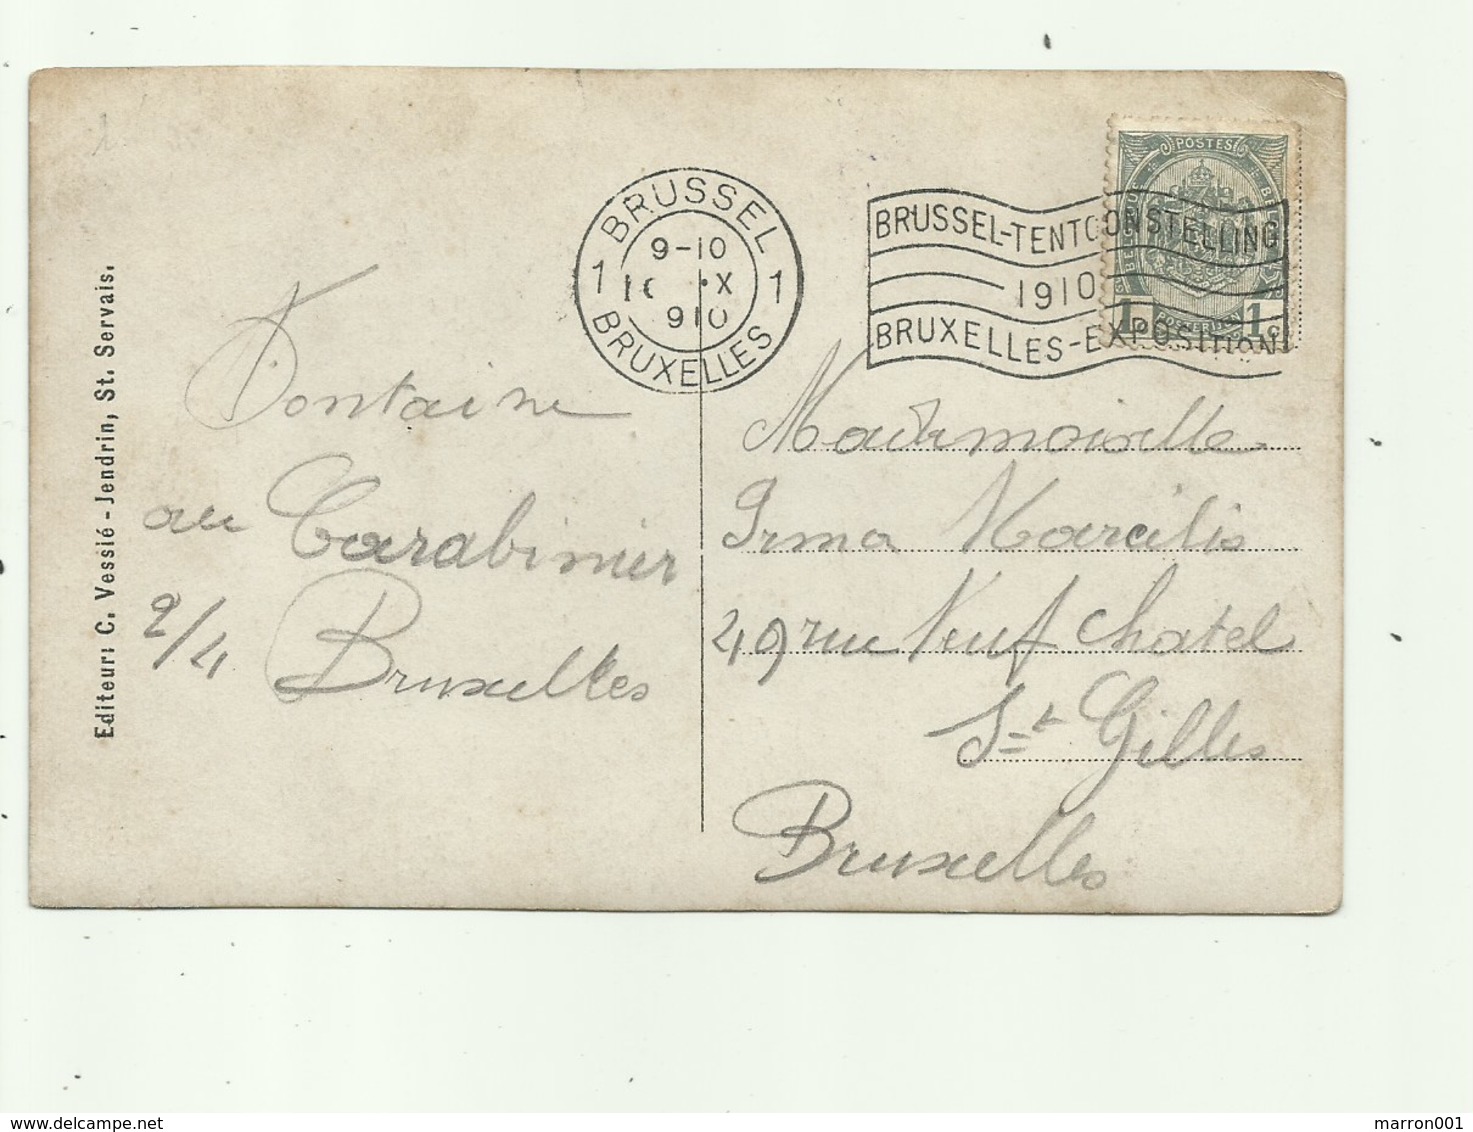 Editeur: C. Vessié - Jendrin, St. Servais.
BRUSSEL
9-10
X
910
1 1
BRUXELLES
BRUSSEL-TENTOONSTELLING
1910
BRUXELLES-EXPOSITION
POSTES
BELGIQUE
POSTERIJEN
1 1c
Fontaine
au Carabinier
2/4 Bruxelles
Mademoiselle
Irma Marcilis
49 rue Neufchatel
St Gilles
Bruxelles
marron001